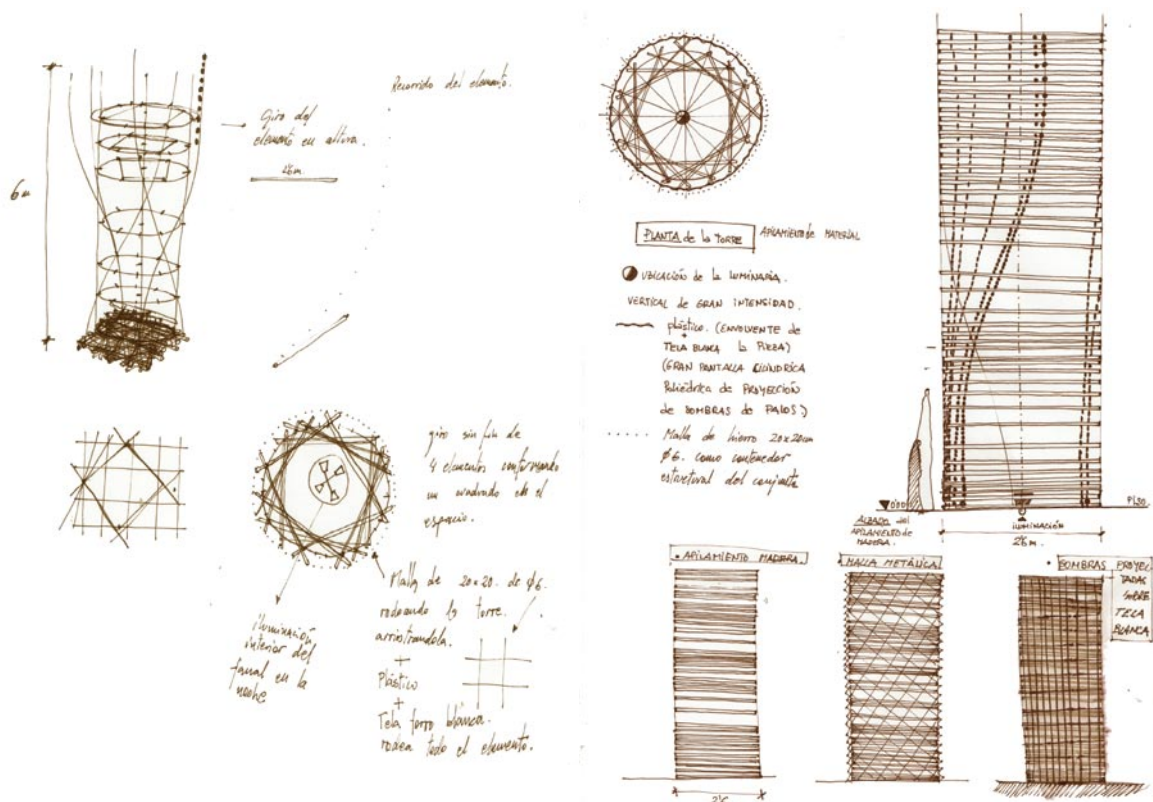 6m
Giro del
elemento en altura.
2'6m.
Recorrido del elemento.
giro sin fin de
4 elementos conformando
un cuadrado en el
espacio.
iluminación
interior del
fanal en la
noche
Malla de 20x20. de ø6.
rodeando la torre.
arriostrandola.
+
Plástico
+
Tela forro blanca.
rodea todo el elemento.
PLANTA de la TORRE
APILAMIENTO de MATERIAL
UBICACIÓN de la LUMINARIA.
VERTICAL DE GRAN INTENSIDAD.
plástico. (ENVOLVENTE DE
+
TELA BLANCA la PIEZA)
(GRAN PANTALLA CILÍNDRICA
Poliédrica de PROYECCIÓN
de SOMBRAS de PALOS)
Malla de hierro 20x20cm
ø6. como contenedor
estructural del conjunto
0'00
ALZADO del
APILAMIENTO de
MADERA.
ILUMINACIÓN
2'6m.
PISO
• APILAMIENTO MADERA.
• MALLA METÁLICA
• SOMBRAS PROYEC-
TADAS
SOBRE
TELA
BLANCA
2'6